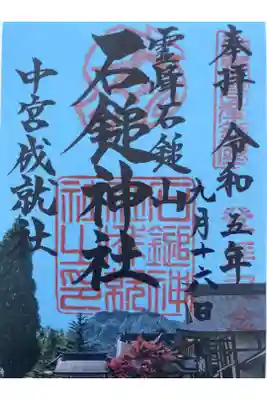 奉拝 令和五年
九月十六日
霊峰石鎚山
石鎚神社
中宮成就社